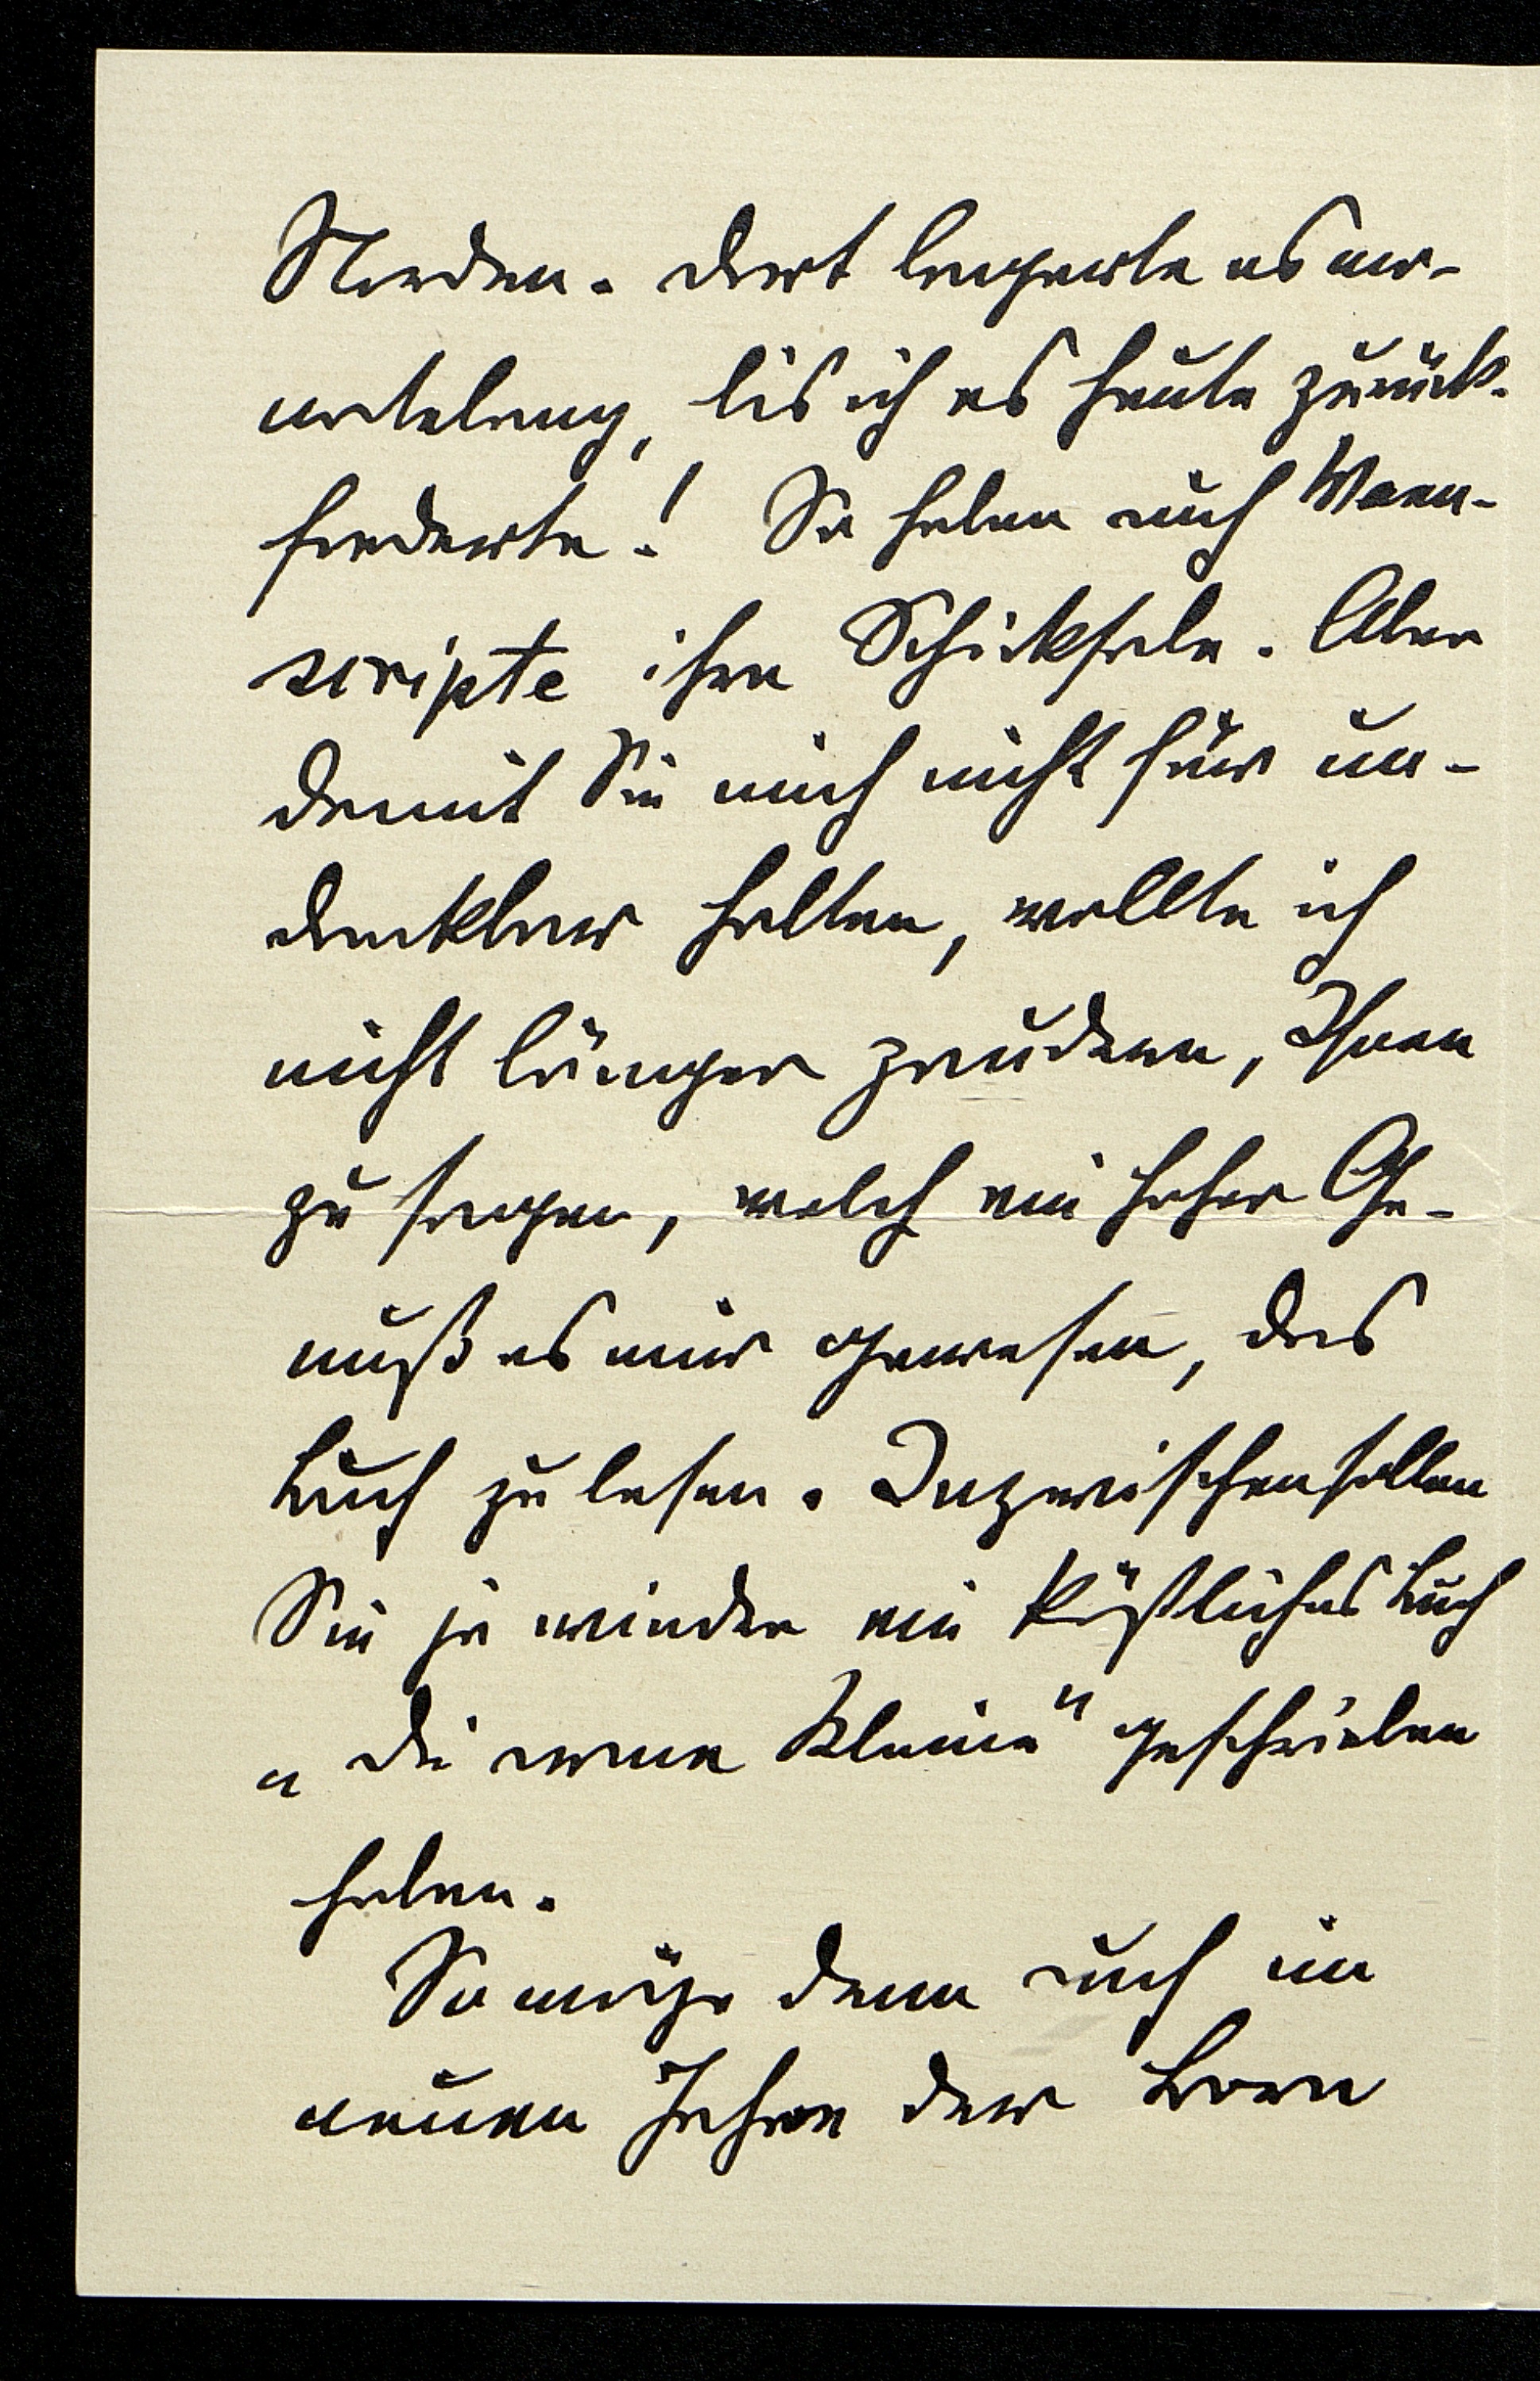 Norden. Dort lagerte es mo-
natelang, bis ich es heute zurück-
forderte! So haben auch Manu-
scripte ihre Schicksale. Aber
damit Sie mich nicht für un-
dankbar halten, wollte ich
nicht länger zaudern, Ihnen
zu sagen, welch ein hoher Ge-
nuß es mir gewesen, das
Buch zu lesen. Inzwischen sollen
Sie ja wieder ein köstliches Buch
„die arme Kleine" geschrieben
haben.
So möge denn auch im
neuen Jahre der Born